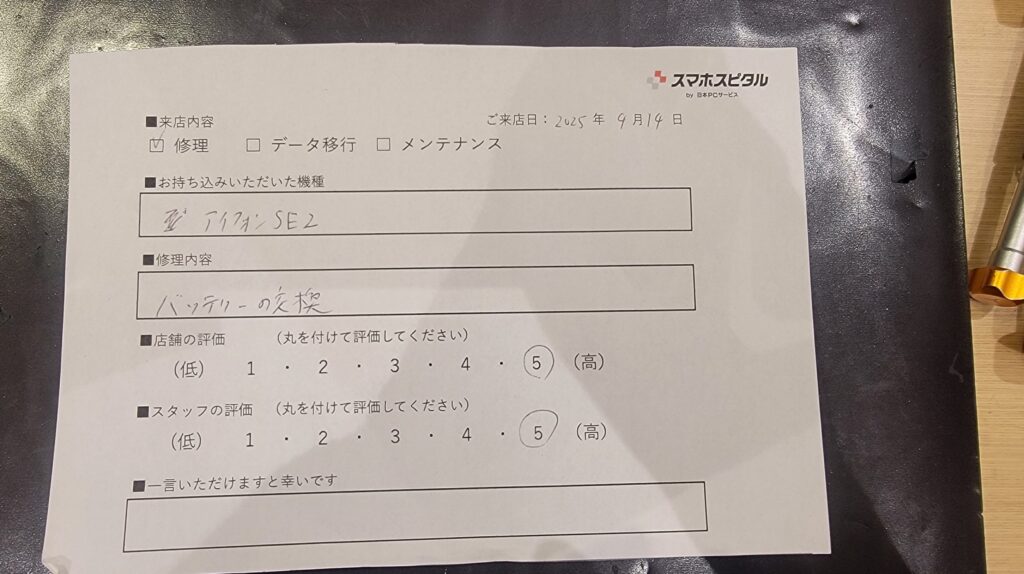 スマホスピタル
by 日本PCサービス
■来店内容
ご来店日：2025年 9月14日
☑ 修理 □ データ移行 □ メンテナンス
■お持ち込みいただいた機種
アイフォンSE2
■修理内容
バッテリーの交換
■店舗の評価 （丸を付けて評価してください）
（低） 1 ・ 2 ・ 3 ・ 4 ・ 5 （高）
■スタッフの評価 （丸を付けて評価してください）
（低） 1 ・ 2 ・ 3 ・ 4 ・ 5 （高）
■一言いただけますと幸いです